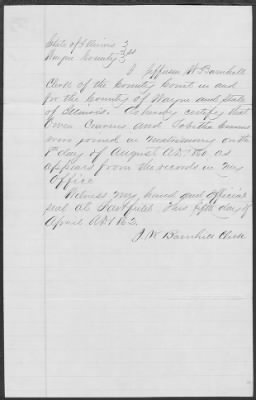 State of Illinois }
Wayne County } ss
I Jefferson W Barnhill
Clerk of the County Court in and
for the County of Wayne and State
of Illinois. Do hereby certify that
Owen and Tabitha
were joined in Matrimony on the
day of August AD as
appears from the records in my
Office
Witness my hand and official
seal at Fairfield this fifth day of
April AD
J. W. Barnhill Clerk